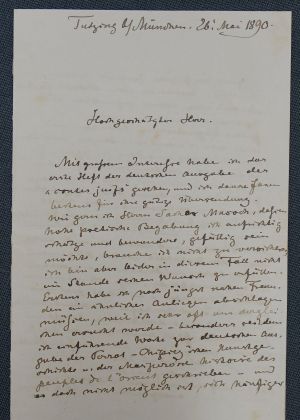 Tutzing b/München. 26. Mai 1890.
Hochgeschätzter Herr.
Mit großem Interesse habe ich das
erste Heft der deutschen Ausgabe der
"contes juifs" gesehen, und ich danke Ihnen
bestens für Ihre gütige Übersendung.
Wie gern ich Herrn Sacher Masoch, dessen
hohe poetische Begabung ich aufrichtig
schätze und bewundere, gefällig sein
möchte, brauche ich nicht zu versichern,
ich bin aber leider in diesem Fall nicht
im Stande seinen Wunsch zu erfüllen.
Erstens habe ich noch jüngst nahen Freun-
den ein ähnliches Anliegen abschlagen
müssen, weil ich sehr oft um derglei-
chen ersucht werde - besonders seitdem
ich einführende Worte zur deutschen Aus-
gabe der Perrot-Chipiez'schen Kunstge-
schichte, der Maspero'schen Histoire des
peuples de l'orient geschrieben - und
es doch nicht möglich ist, sich häufiger